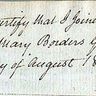 ertify that I Joine
Mary Borders
y of August 18